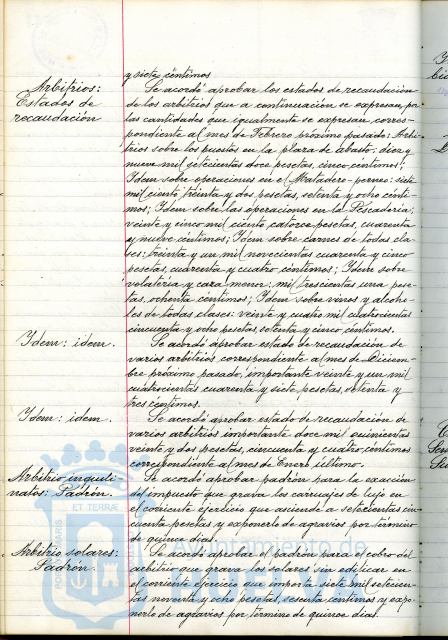 y siete céntimos.
Arbitrios:
Estados de
recaudación
Se acordó aprobar los estados de recaudación
de los arbitrios que a continuación se expresan, por
las cantidades que igualmente se expresan corres-
pondiente al mes de Febrero próximo pasado: Arbi-
trios sobre los puestos en la plaza de abasto: diez y
nueve mil setecientas doce pesetas, cinco céntimos;
Idem sobre operaciones en el Matadero-perneo: siete
mil ciento treinta y dos pesetas, setenta y ocho cénti-
mos; Idem sobre las operaciones en la Pescadería;
veinte y cinco mil ciento catorce pesetas, cuarenta
y nueve céntimos; Idem sobre carnes de todas cla-
ses: treinta y un mil novecientas cuarenta y cinco
pesetas, cuarenta y cuatro céntimos; Idem sobre
volatería y caza menor: mil trescientas una pese-
tas, ochenta céntimos; Idem sobre vinos y alcoho-
les de todas clases: veinte y cuatro mil cuatrocientas
cincuenta y ocho pesetas, setenta y cinco céntimos.
Idem: idem.
Se acordó aprobar estado de recaudación de
varios arbitrios correspondiente al mes de Diciem-
bre próximo pasado, importante veinte y un mil
cuatrocientas cuarenta y siete pesetas, setenta y
tres céntimos.
Idem: idem.
Se acordó aprobar estado de recaudación de
varios arbitrios importante doce mil quinientas
veinte y dos pesetas, cincuenta y cuatro céntimos
correspondiente al mes de Enero último.
Arbitrio inquili-
natos: Padrón.
Se acordó aprobar padrón para la exacción
del impuesto que grava los carruajes de lujo en
el corriente ejercicio que asciende a setecientas cin-
cuenta pesetas y exponerlo de agravios por término
de quince días.
Arbitrio solares:
Padrón.
Se acordó aprobar el padrón para el cobro del
arbitrio que grava los solares sin edificar en
el corriente ejercicio que importa siete mil setecien-
tas noventa y ocho pesetas, sesenta céntimos y expo-
nerlo de agravios por término de quince días.
ET TERRAE
Ayuntamiento de